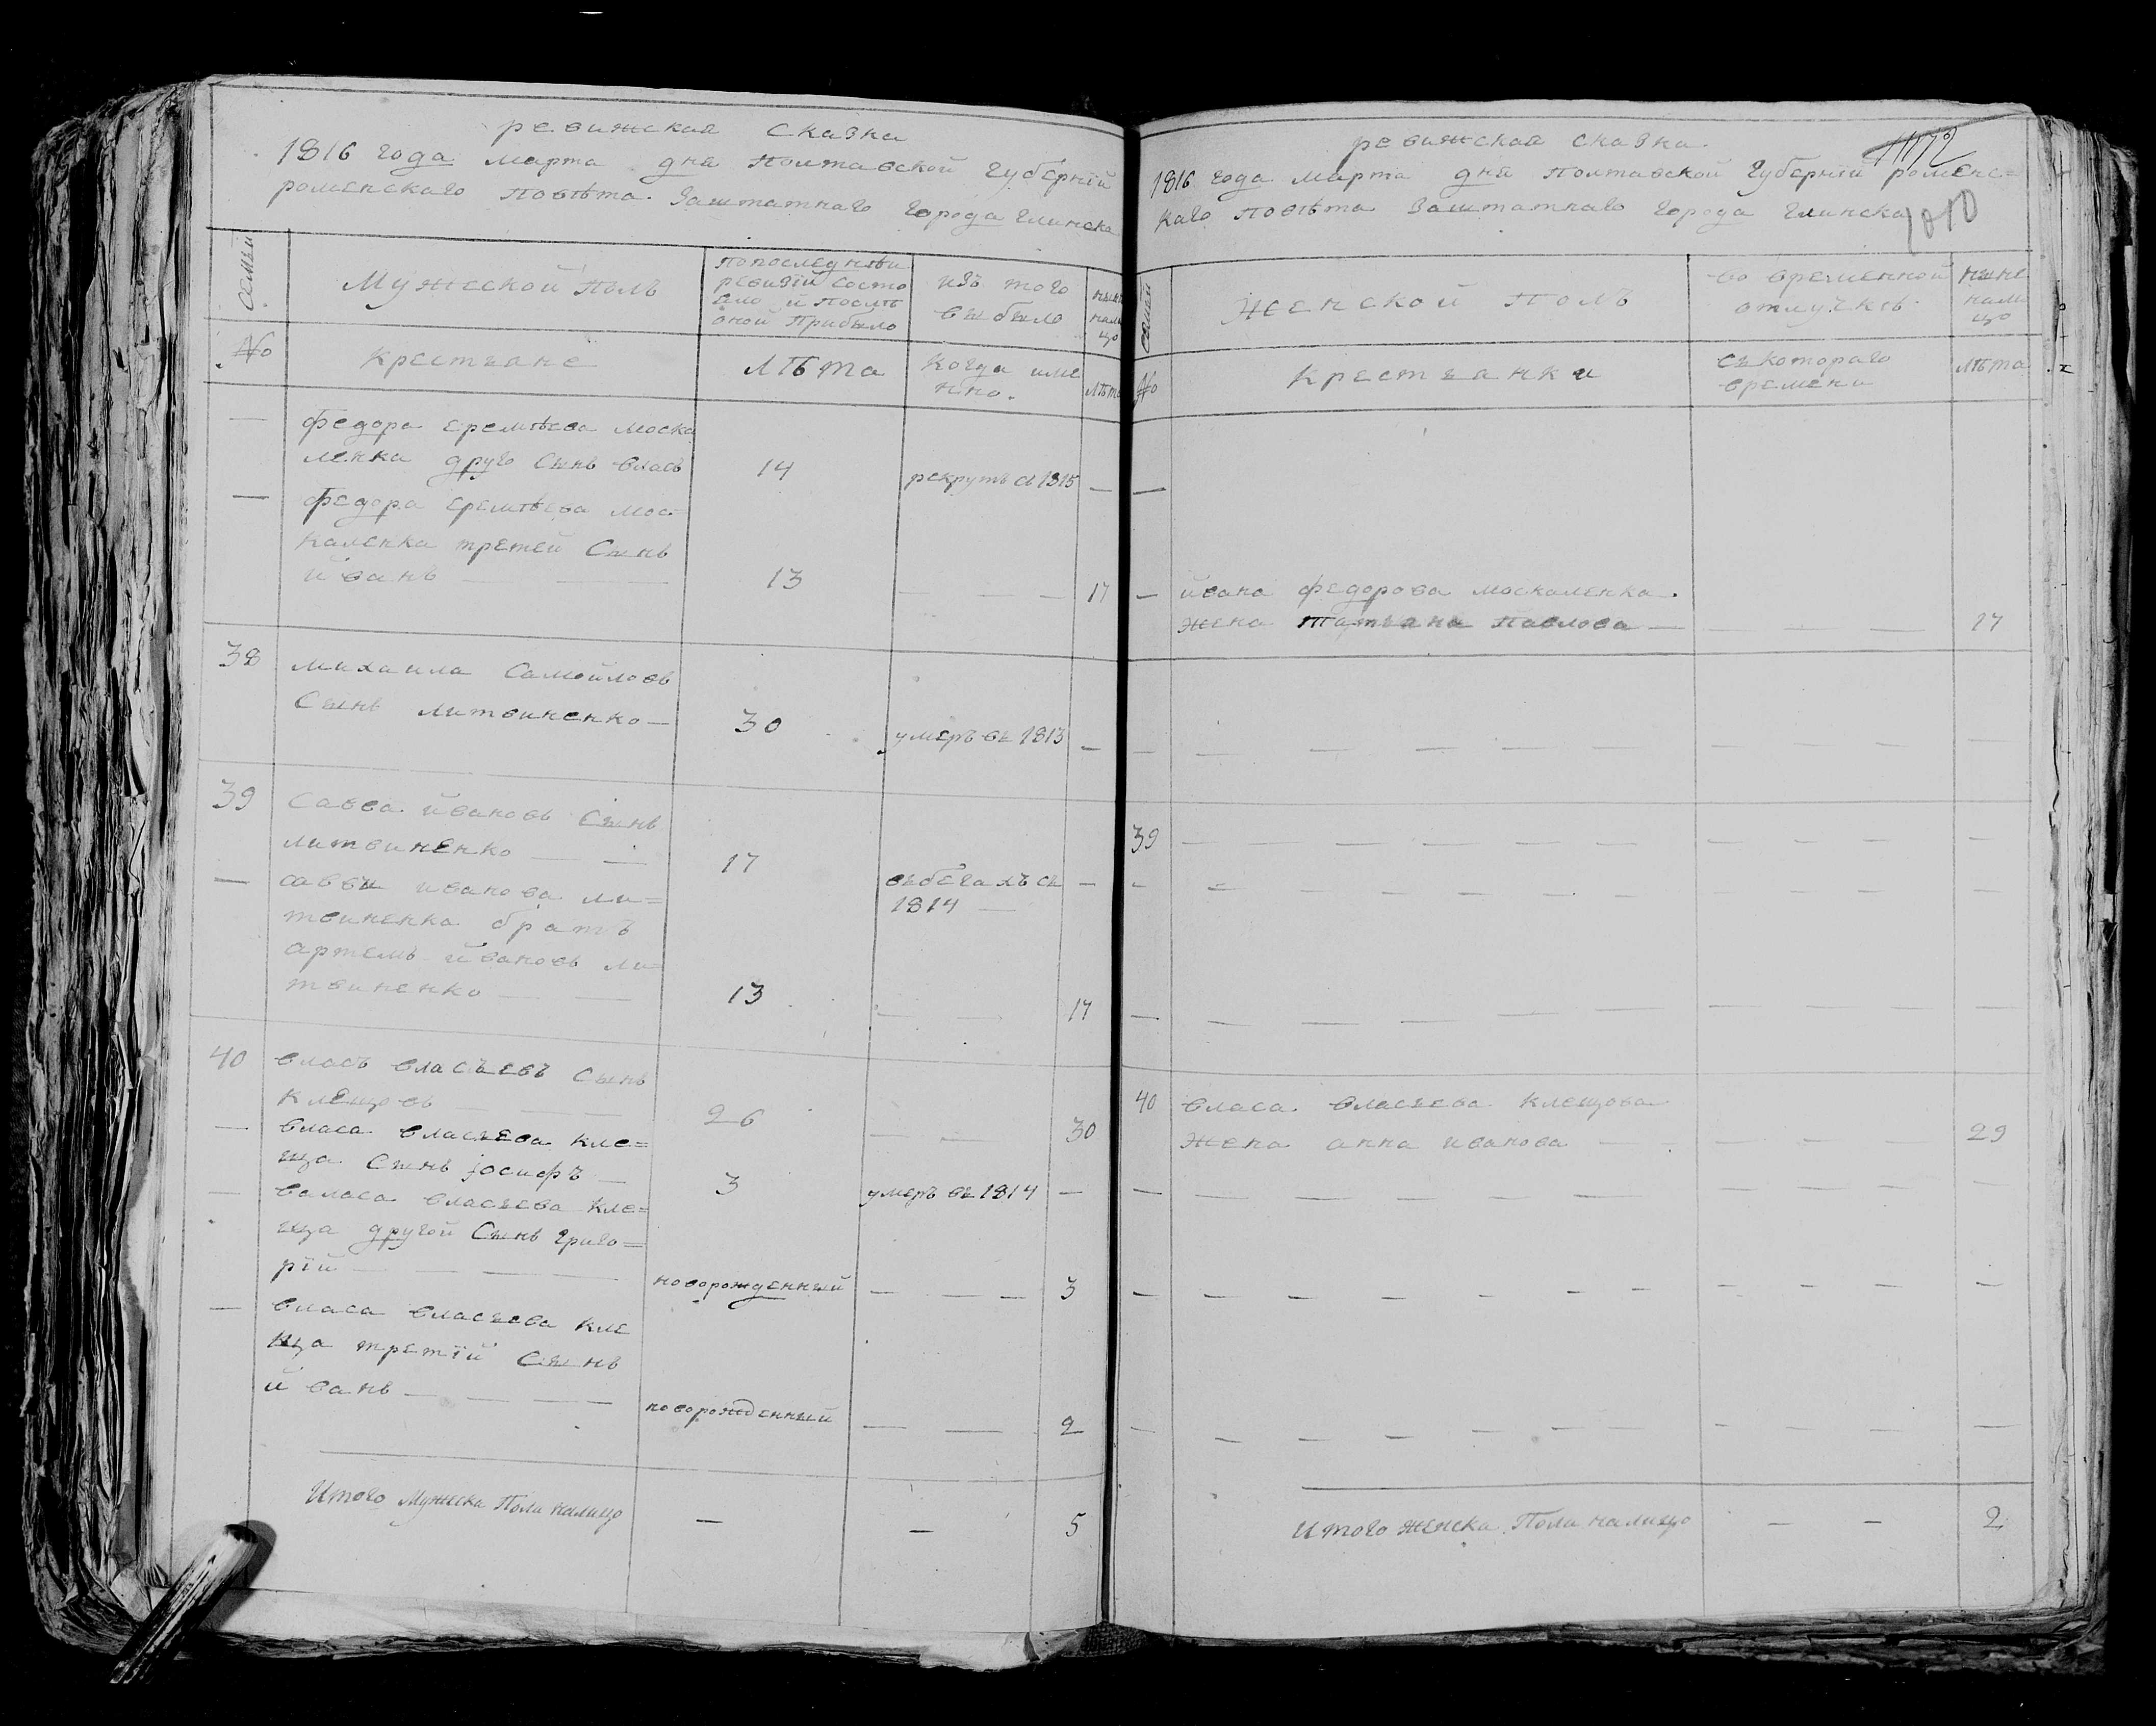 ревижская сказка
1816 года марта дня полтавской губернїи
роменскаго повѣта заштатнаго города глинска
Семьи
Мужеской полъ
попоследнѣи
ревизїи состо
яло и послѣ
оной прибыло
изъ того
выбыло
нынѣ
нали
цо
№
крестьяне
лѣта
когда име
нно.
лѣта
федора еремѣева моска
ленка друго сынъ власъ
14
рекрутъ въ 1815
федора еремѣева мос=
каленка третей сынъ
йванъ
13
17
38
михаила самойловъ
сынъ литвиненко
30
умеръ въ 1813
39
савва йвановъ сынъ
литвиненко
17
въбегахъ съ
1814
саввы иванова ли=
твиненка братъ
артемъ йвановъ ли=
твиненко
13
17
40
власъ власъевъ сынъ
клещовъ
26
30
власа власъева кле=
ща сынъ јосифъ
3
умеръ въ 1814
валаса власъева кле=
ща другой сынъ григо=
рїй
новорожденный
3
власа власъева кле
ща третїй сынъ
йванъ
новорожденный
2
Итого мужеска пола налицо
5
ревижская сказка
1816 года марта дня полтавской губернїи роменс=
каго повѣта заштатнаго города глинска
1010
семьи
женской полъ
во временной
отлучкѣ
ныне
нали
цо
№
крестъянки
съ котораго
времени
лѣта
йвана федорова москаленка
жена татьяна павлова
17
39
40
власа власъева клещова
жена анна иванова
29
Итого женска пола налицо
2